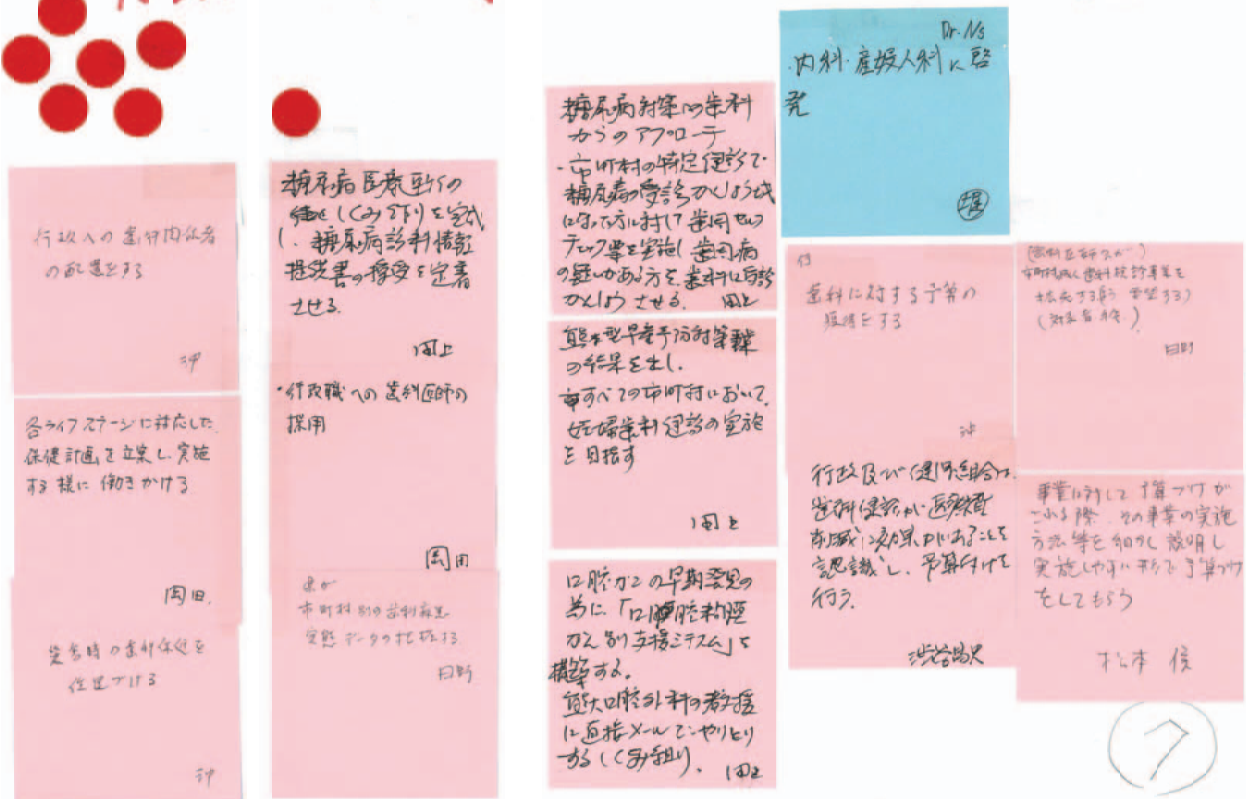 行政への歯科関係者
の配置をする
沖
各ライフステージに対応した
保健計画を立案し実施
する様に働きかける
岡田
災害時の歯科保健を
位置づける
沖
糖尿病医療連携の
しくみ作りを完成
し、糖尿病診科情報
提供書の授受を定着
させる。
田上
・行政職への歯科医師の
採用
岡田
県が
市町村別の歯科疾患
実態データの把握する
日野
糖尿病対策への歯科
からのアプローチ
・市町村の特定健診で
糖尿病の受診かんしょう域
になった方に対して歯周セルフ
チェック等を実施し歯周病
の疑いがある方を、歯科に受診
かんしょうさせる。 田上
熊本型早産予防対策事業
の結果を出し、
すべての市町村において、
妊婦歯科健診の実施
を目指す
田上
口腔ガンの早期発見の
為に「口腔粘膜
ガン 支援システム」を
構築する。
熊大口腔外科の教授
に直接メールでやりとり
するしくみ作り。 田上
Dr. Ns
・内科・産婦人科に啓
発
歯科に対する予算の
獲得をする
沖
行政及び健保組合は
歯科健診が医療費
削減に効果があることを
認識し、予算付けを
行う。
渋谷
市町村に歯科検診事業を
(対象者 )
日野
事業に対して予算づけが
される際、その事業の実施
方法等を細かく説明し
実施しやすい形で予算づけ
をしてもらう
松本 信
7